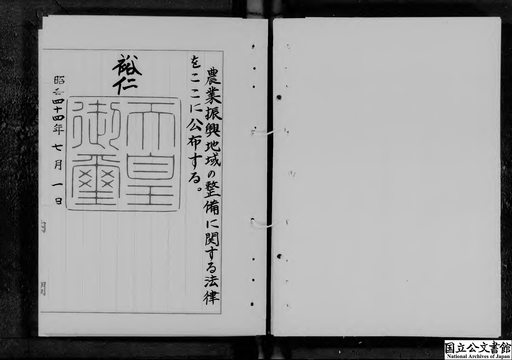 農業振興地域の整備に関する法律
をここに公布する。
裕仁
天皇
御璽
昭和四十四年七月一日
国立公文書館
National Archives of Japan